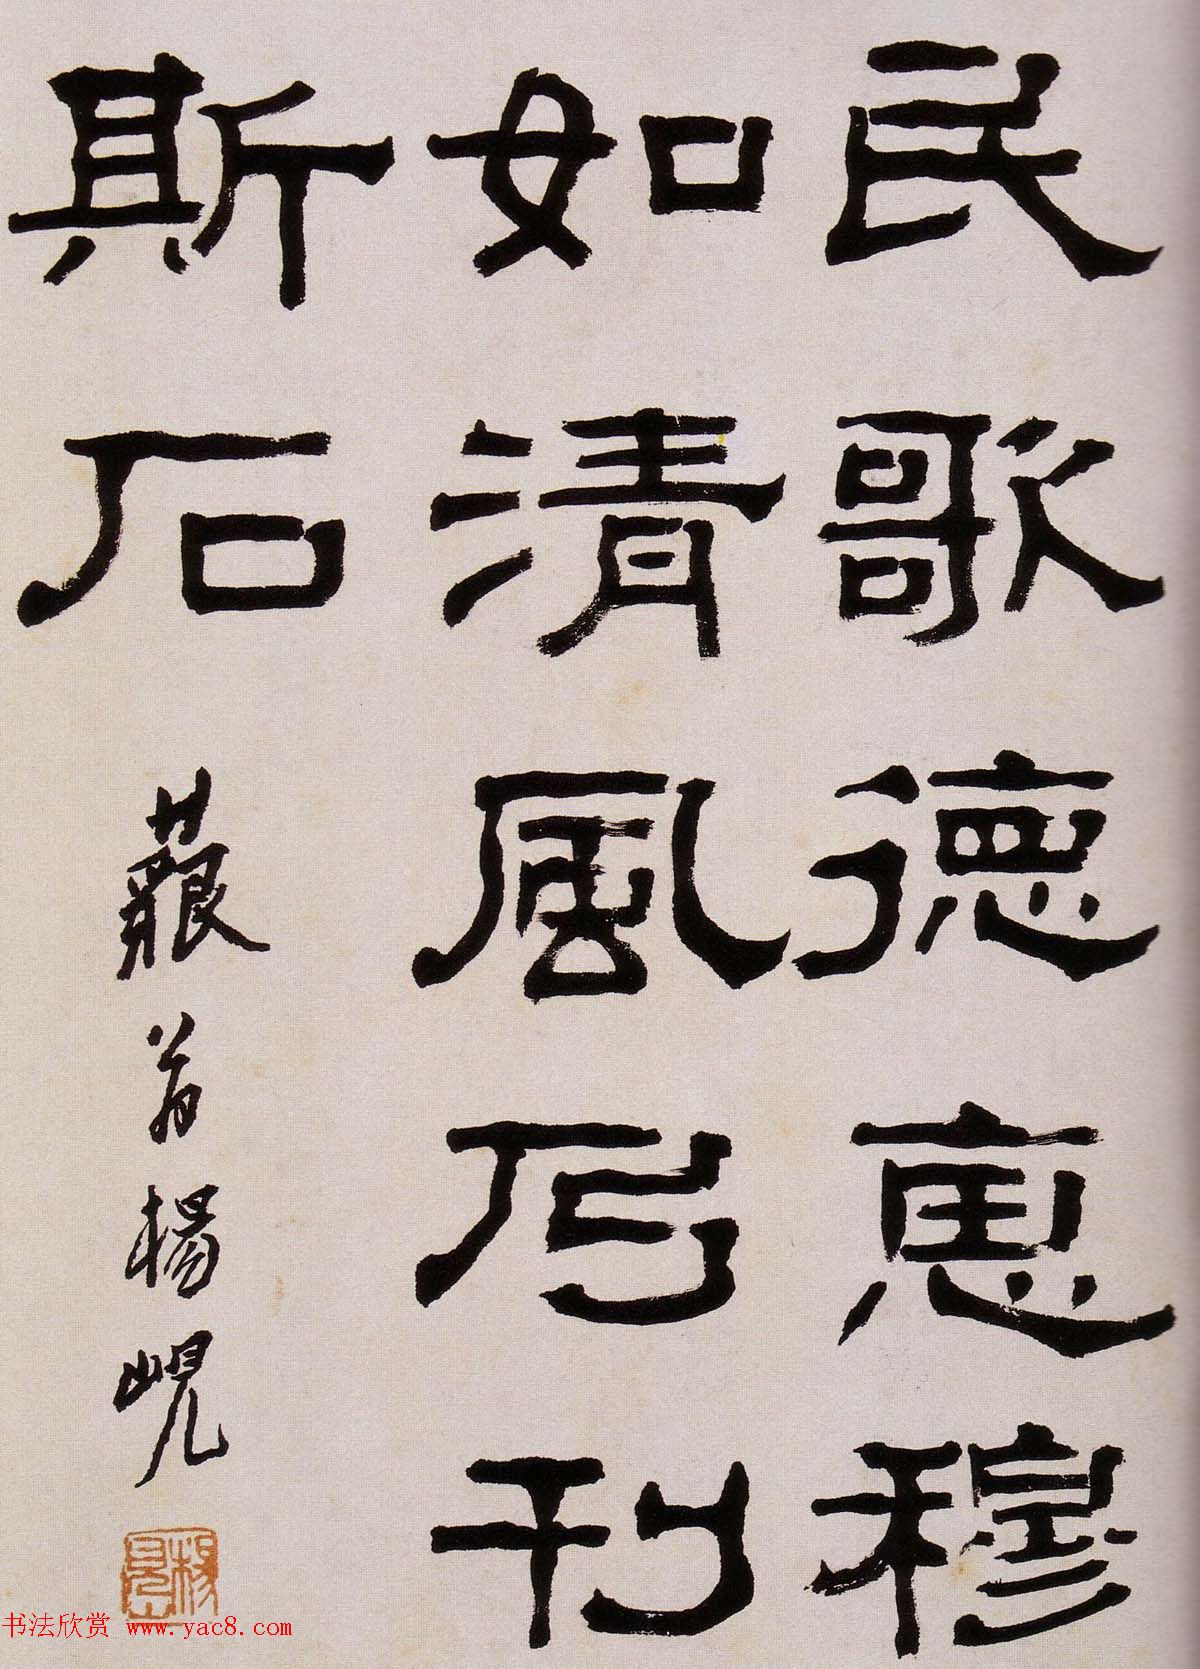 民歌德惠穆
如清風乃刊
斯石
藐翁楊峴
楊峴
书法欣赏 www.yac8.com